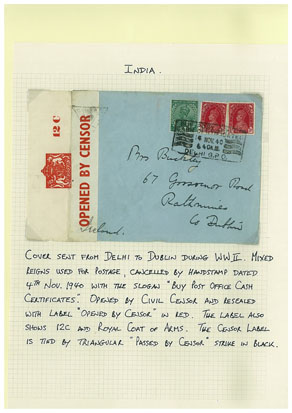 INDIA.
12 C
OPENED BY CENSOR
4 NOV. 40
6.40 A.M.
DELHI G.P.O.
Mrs Buckley
67 Grosvenor Road
Rathmines
Co Dublin
Ireland.
COVER SENT FROM DELHI TO DUBLIN DURING WW II. MIXED
REIGNS USED FOR POSTAGE, CANCELLED BY HANDSTAMP DATED
4TH NOV. 1940 WITH THE SLOGAN "BUY POST OFFICE CASH
CERTIFICATES". OPENED BY CIVIL CENSOR AND RESEALED
WITH LABEL "OPENED BY CENSOR" IN RED. THE LABEL ALSO
SHOWS 12C AND ROYAL COAT OF ARMS. THE CENSOR LABEL
IS TIED BY TRIANGULAR "PASSED BY CENSOR" STRIKE IN BLACK.